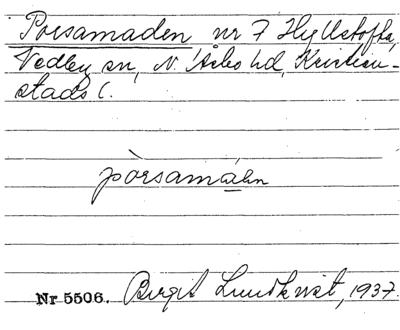 Porsamaden nr 7 Hyllstofta,
Vedby sn, N. Åsbo hd, Kristian-
stads l.
pòrsamáhn
Nr 5506. Birgit Lundkvist, 1937.